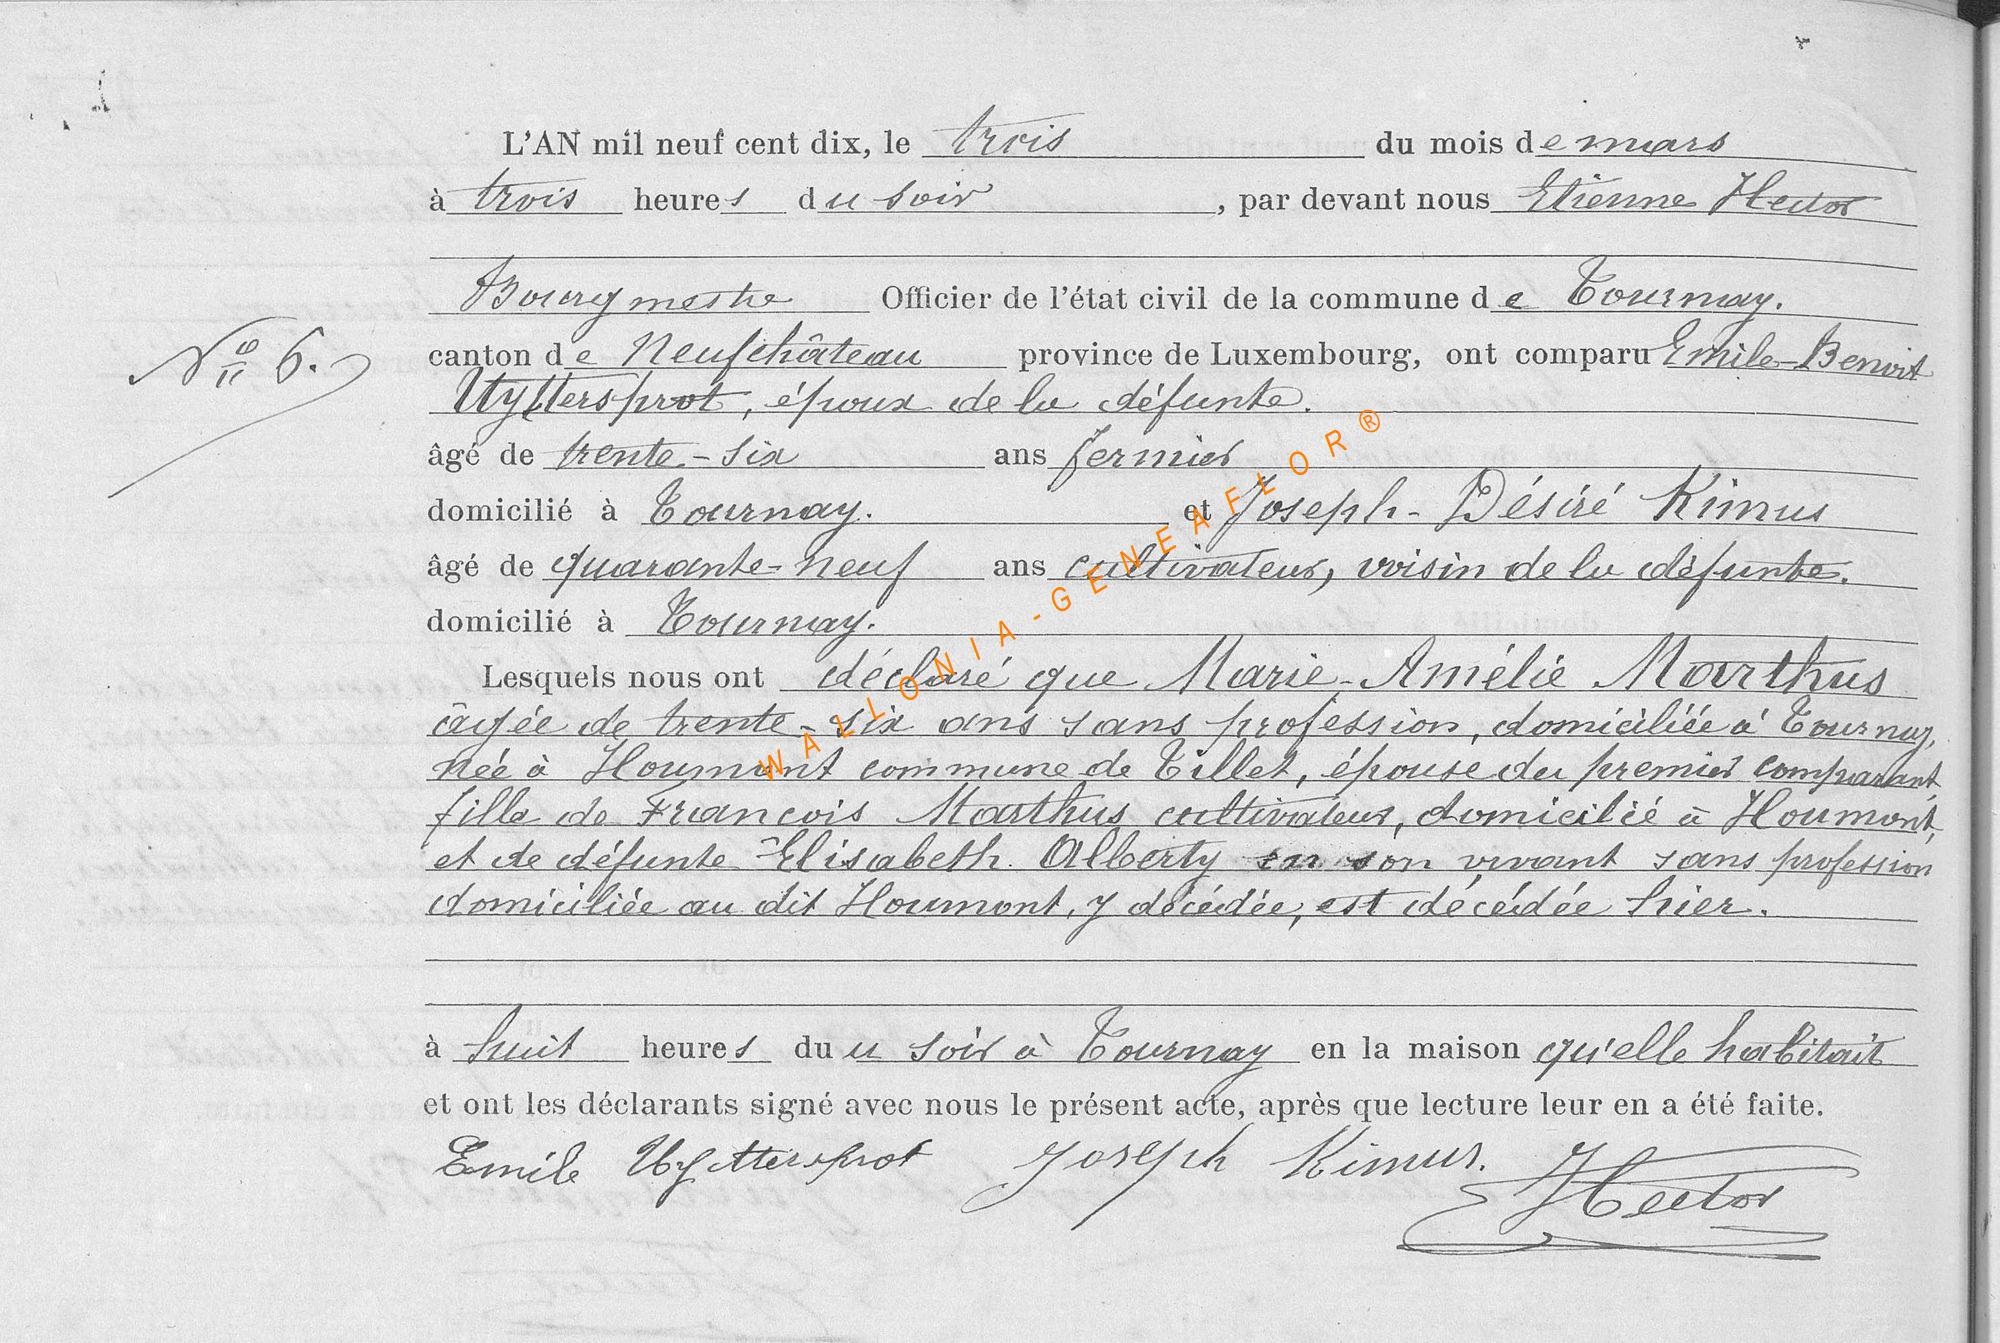 L'AN mil neuf cent dix, le trois du mois de mars
à trois heures du soir, par devant nous Etienne Hector
Bourgmestre Officier de l'état civil de la commune de Tournay.
N° 6. canton de Neufchâteau province de Luxembourg, ont comparu Emile-Benoit
Uyttersprot, époux de la défunte.
âgé de trente-six ans fermier
domicilié à Tournay. et Joseph-Désiré Kimus
âgé de quarante-neuf ans cultivateur, voisin de la défunte.
domicilié à Tournay.
Lesquels nous ont déclaré que Marie-Amélie Marthus
âgée de trente-six ans sans profession, domiciliée à Tournay,
née à Houmont commune de Tillet, épouse du premier comparant,
fille de François Marthus cultivateur, domicilié à Houmont,
et de défunte Elisabeth Alberty en son vivant sans profession
domiciliée au dit Houmont, y décédée, est décédée hier.
à huit heures du u soir à Tournay en la maison qu'elle habitait
et ont les déclarants signé avec nous le présent acte, après que lecture leur en a été faite.
Emile Uyttersprot Joseph Kimus. Hector
WALLONIA-GENEAFLOR®